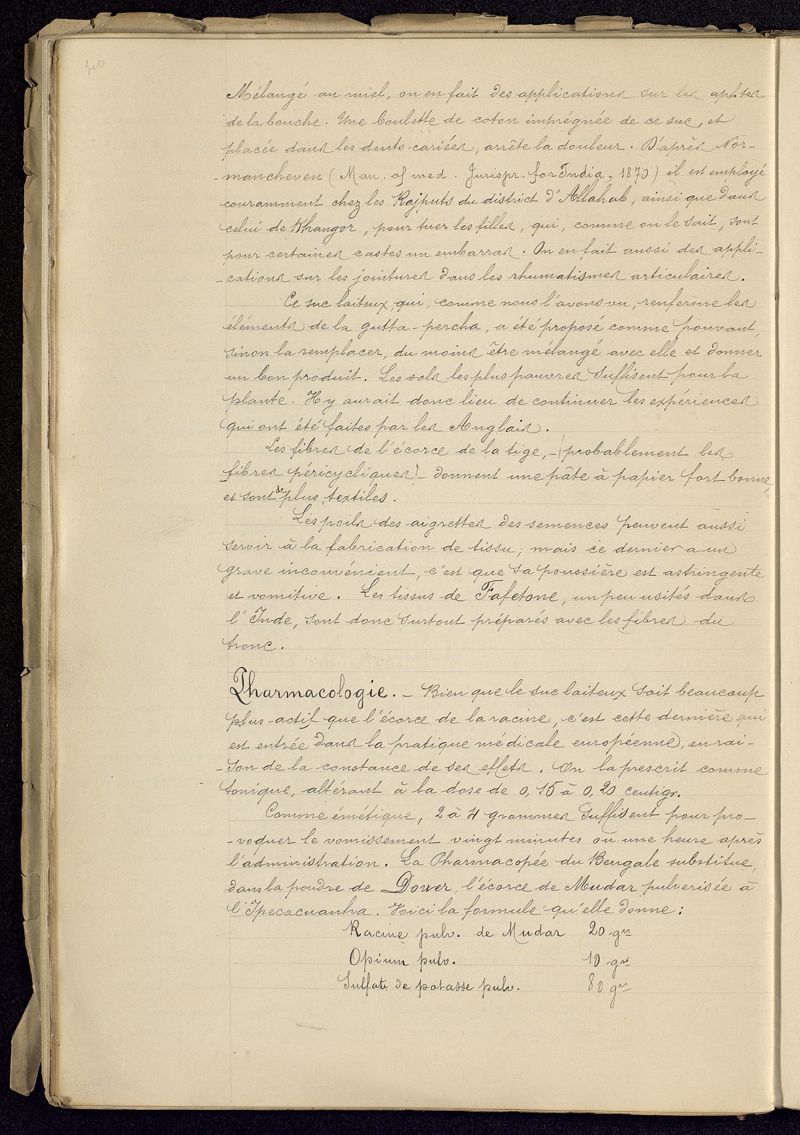 Mélangé au miel, on en fait des applications sur les aphtes
de la bouche. Une boulette de coton imprégnée de ce suc, et
placée dans les dents cariées, arrête la douleur. D'après Nor-
-mancheven (Man. of med. Jurispr. for India, 1870) il est employé
couramment chez les Rajputs du district d'Allahab, ainsi que dans
celui de Khangor, pour tuer les filles, qui, comme on le sait, sont
pour certaines castes un embarras. On en fait aussi des appli-
-cations sur les jointures dans les rhumatismes articulaires.
Ce suc laiteux, qui, comme nous l'avons vu, renferme les
éléments de la gutta-percha, a été proposé comme pouvant,
sinon la remplacer, du moins être mélangé avec elle et donner
un bon produit. Les sols les plus pauvres suffisent pour la
plante. Il y aurait donc lieu de continuer les expériences
qui ont été faites par les Anglais.
Les fibres de l'écorce de la tige, -(probablement les
fibres péricycliques)- donnent une pâte à papier fort bonne,
et sont de plus, textiles.
Les poils des aigrettes des semences peuvent aussi
servir à la fabrication de tissu; mais ce dernier a un
grave inconvénient, c'est que sa poussière est astringente
et vomitive. Les tissus de Fafetone, un peu usités dans
l'Inde, sont donc surtout préparés avec les fibres du
tronc.
Pharmacologie. - Bien que le suc laiteux soit beaucoup
plus actif que l'écorce de la racine, c'est cette dernière qui
est entrée dans la pratique médicale européenne, en rai-
-son de la constance de ses effets. On la prescrit comme
tonique, altérant à la dose de 0,15 à 0,20 centigr.
Comme émétique, 2 à 4 grammes suffisent pour pro-
-voquer le vomissement vingt minutes ou une heure après
l'administration. La Pharmacopée du Bengale substitue,
dans la poudre de Dower, l'écorce de Mudar pulverisée à
l'Ipecacuanha. Voici la formule qu'elle donne:
Racine pulv. de Mudar 20 grs
Opium pulv. 10 grs
Sulfate de potasse pulv. 80 grs